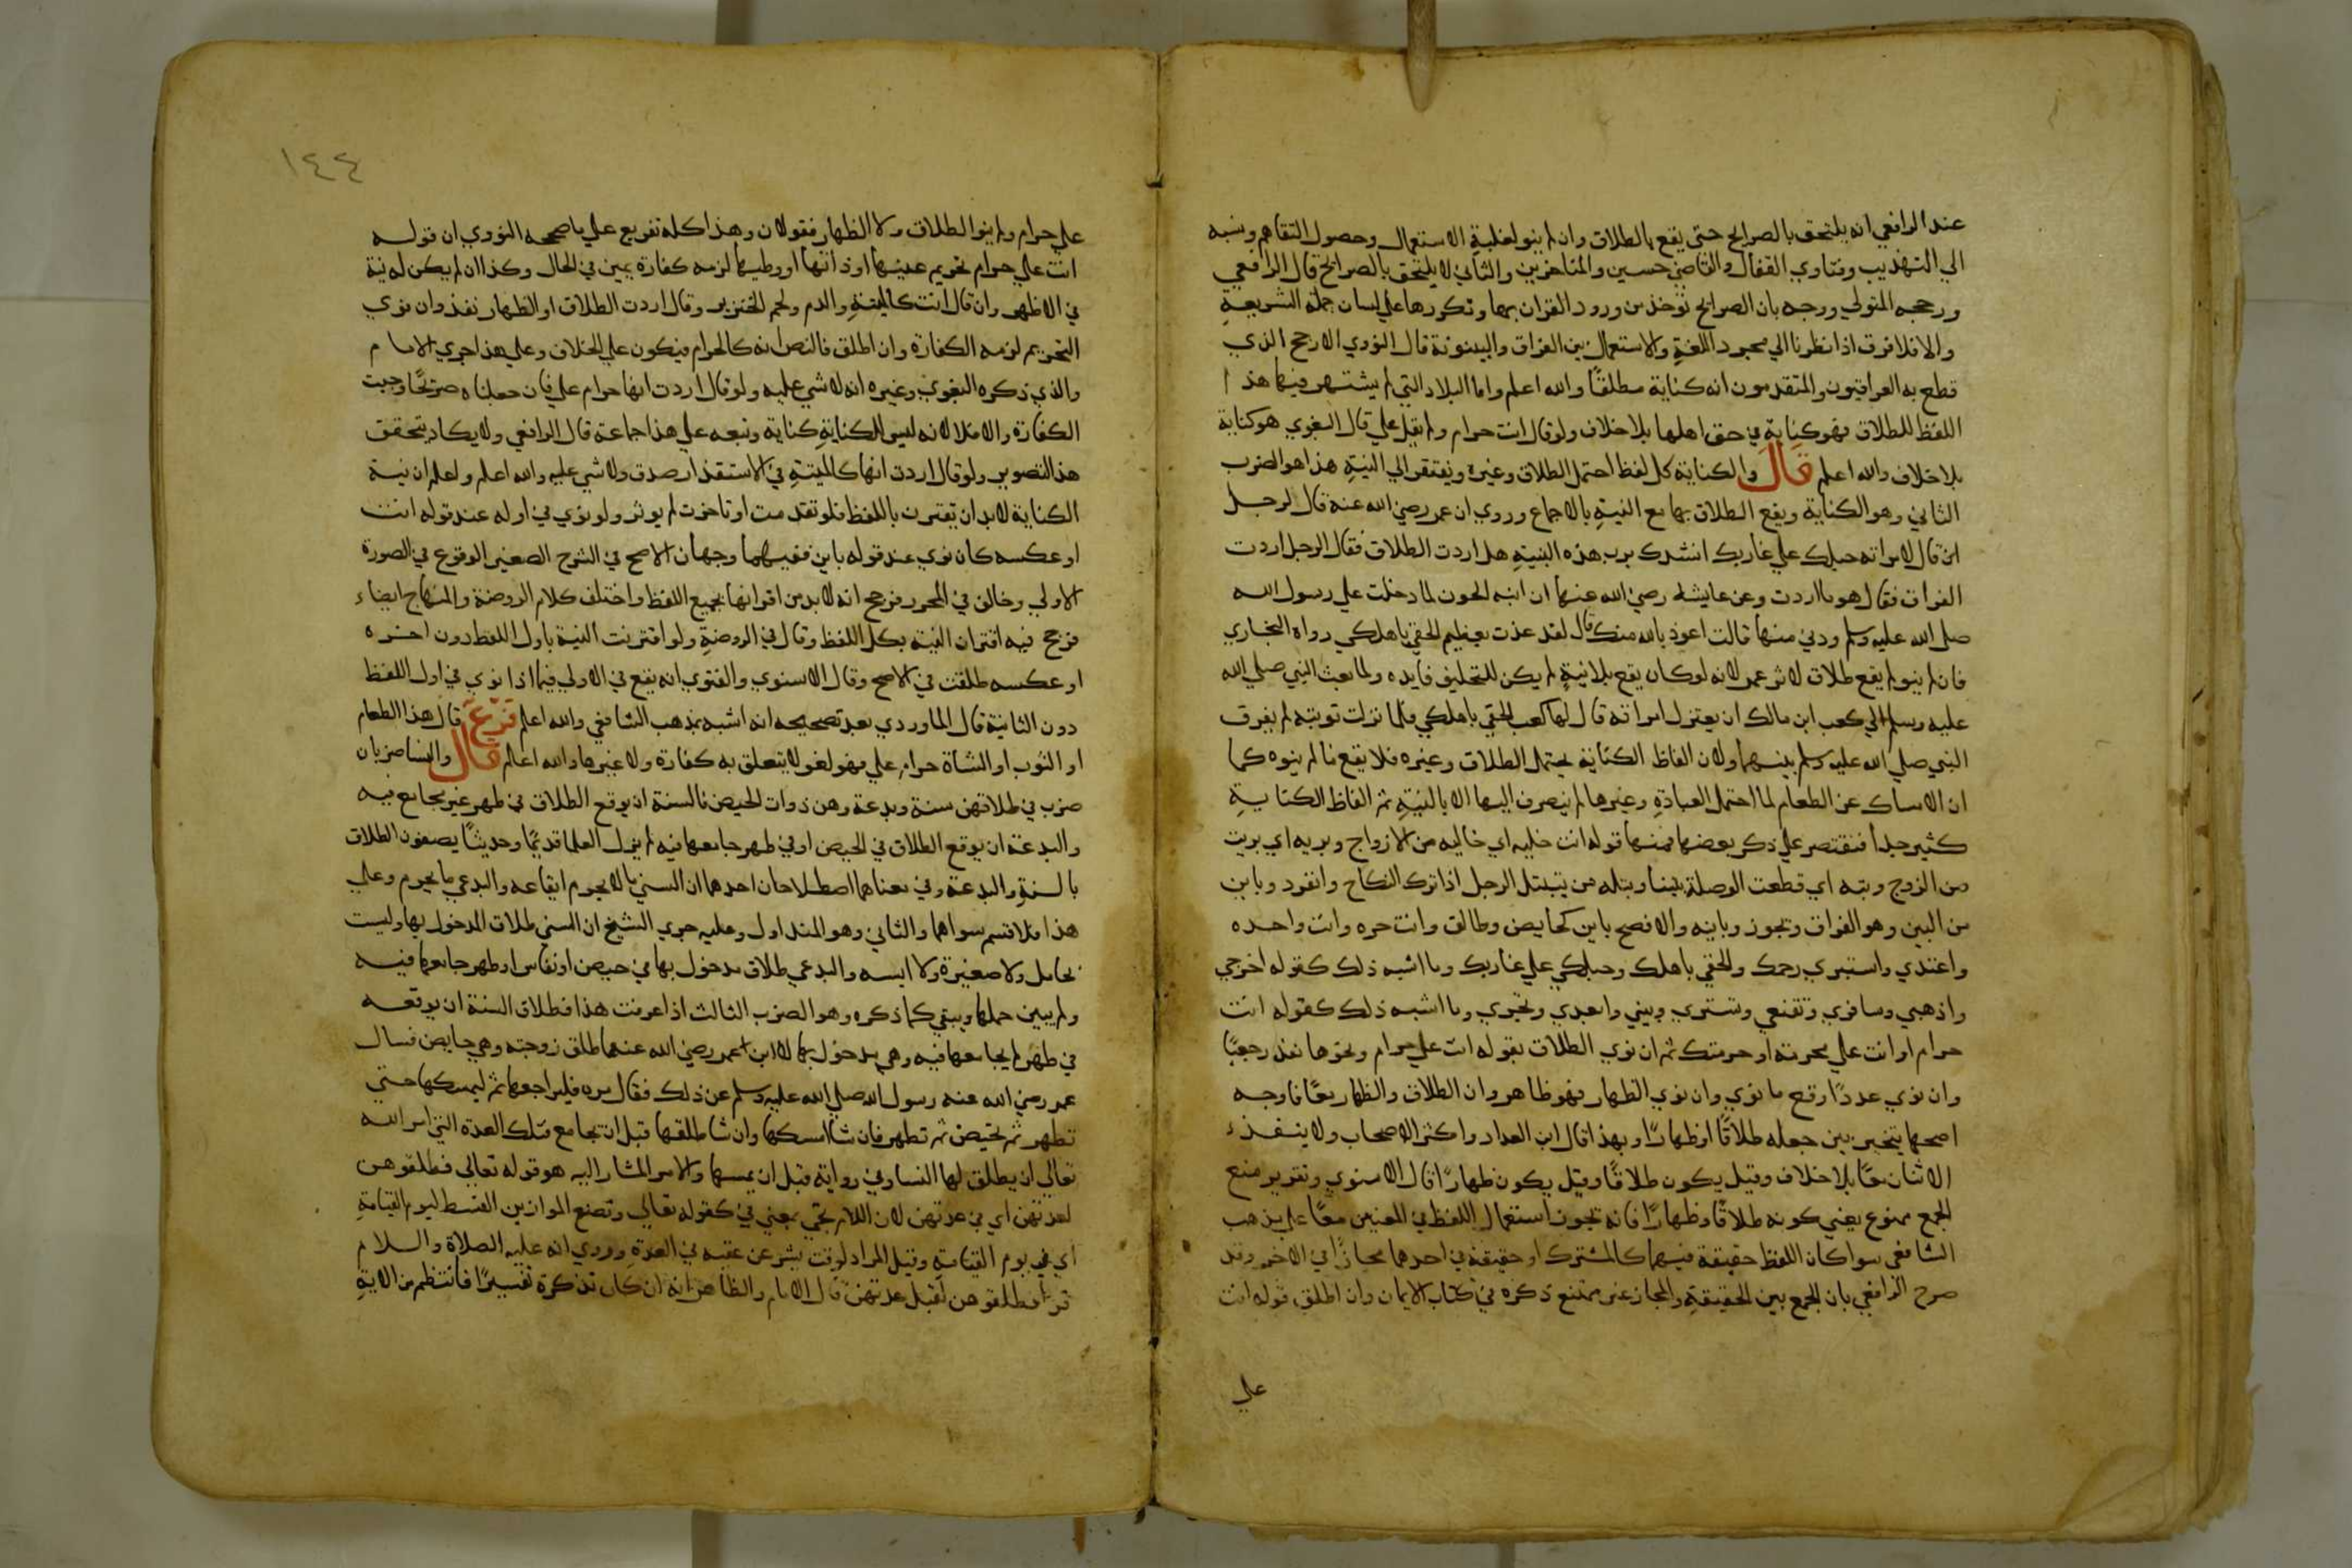 عند الرافعي انه يلتحق بالصرايح حتى يقع بها الطلاق وان لم ينو لغلبة الاستعمال وحصول التفاهم ونسبه
الي التهذيب وفتاوي القفال والقاضي حسين والمتاخرين والثاني لا يلتحق بالصرايح قال الرافعي
ورجحه المتولي ووجه بان الصرايح تؤخذ من ورود القران بها وتكررها علي لسان حملة الشريعة
والا فلا فرق اذا نظرنا الي مجرد اللغة والاستعمال بين الفراق والبينونة قال النووي الارجح الذي
قطع به العراقيون والمتقدمون انه كناية مطلقًا والله اعلم واما البلاد التي لم يشتهر فيها هذا
اللفظ للطلاق فهو كناية في حق اهلها بلا خلاف ولو قال انت حرام ولم يقل علي قال البغوي هو كناية
بلا خلاف والله اعلم قال والكناية كل لفظ احتمل الطلاق وغيره ويفتقر الي النية هذا هو الضرب
الثاني وهو الكناية ويقع الطلاق بها مع النية بالاجماع وروي ان عمر رضي الله عنه قال لرجل
ان قال لامراته حبلك علي غاربك انشدك برب هذه البنية هل اردت الطلاق فقال الرجل اردت
الفراق فقال هو ما اردت وعن عايشة رضي الله عنها ان ابنه الجون لما دخلت علي رسول الله
صلى الله عليه وسلم ودني منها قالت اعوذ بالله منك قال لقد عذت بعظيم الحقي باهلكي رواه البخاري
فان لم ينو لم يقع طلاق لاثر عمر لانه لو كان يقع بلا نية لم يكن للتحليف فايده ولما بعث النبي صلي الله
عليه وسلم الي كعب ابن مالك ان يعتزل امراته قال لها كعب الحقي باهلكي فلما نزلت توبته لم يفرق
النبي صلي الله عليه وسلم بينهما ولان الفاظ الكناية يحتمل الطلاق وغيره فلا يقع ما لم ينوه كما
ان الامساك عن الطعام لما احتمل العبادة وغيرها لم ينصرف اليها الا بالنية ثم الفاظ الكناية
كثير جدا فنقتصر علي ذكر بعضها فمنها قوله انت خليه اي خاليه من الازواج وبريه اي بريت
من الزوج وبته اي قطعت الوصلة بيننا وبتله من يتبتل الرجل اذا ترك النكاح وانفرد وباين
من البين وهو الفراق وتجوز وباينه والافصح باين كحايض وطالق وانت حره وانت واحده
واعتدي واستبري رحمك والحقي باهلك وحبلكي علي غاربك وما اشبه ذلك كقوله اخرجي
واذهبي وسافري وتقنعي وتستري وبيني وابعدي وتجري وما اشبه ذلك كقوله انت
حرام او انت علي محرمة او حرمتك ثم ان نوي الطلاق بقوله انت علي حرام ونحوها نفذ رجعيًا
وان نوي عددًا وقع ما نوي وان نوي الظهار فهو ظاهر وان الطلاق والظهار معًا فاوجه
اصحها يتخير بين جعله طلاقًا او ظهارًا وبهذا قال ابن الحداد واكثر الاصحاب ولا ينفذ
الاثنان معًا بلا خلاف وقيل يكون طلاقًا وقيل يكون ظهارًا قال الاسنوي وتقرير منع
الجمع ممنوع يعني كونه طلاقًا وظهارًا فانه تجوز استعمال اللفظ في المعنيين معًا علي مذهب
الشافعي سوا كان اللفظ حقيقة فيهما كالمشترك او حقيقة في احدهما مجازًا في الاخر وقد
صرح الرافعي بان الجمع بين الحقيقة والمجاز غير ممتنع ذكره في كتاب الايمان وان اطلق قوله انت
علي
١٤٤
علي حرام ولم ينو الطلاق ولا الظهار فقولان وهذا كله تفريع علي ما صححه النووي ان قوله
انت علي حرام تحريم عينها او ذاتها او وطيها لزمه كفارة يمين في الحال وكذا ان لم يكن له نية
في الاظهر وان قال انت كالميتة والدم ولحم الخنزير وقال اردت الطلاق او الظهار نفذ وان نوي
التحريم لزمه الكفارة وان اطلق فالنص انه كالحرام فيكون علي الخلاف وعلي هذا جري الامام
والذي ذكره البغوي وغيره انه لا شي عليه ولو قال اردت انها حرام علي فان جعلناه صريحًا وجبت
الكفارة والا فلا لانه ليس للكناية كناية وتبعه علي هذا جماعة قال الرافعي ولا يكاد يتحقق
هذا التصوير ولو قال اردت انها كالميتة في الاستقذار صدق ولا شي عليه والله اعلم واعلم ان نية
الكناية لا بد ان تقترن باللفظ فلو تقدمت او تاخرت لم يوثر ولو نوي في اوله عند قوله انت
او عكسه كان نوي عند قوله باين ففيهما وجهان الاصح في الشرح الصغير الوقوع في الصورة
الاولي وخالف في المحرر فرجح انه لا بد من اقترانها بجميع اللفظ واختلف كلام الروضة والمنهاج ايضا
فرجح فيه اقتران النية بكل اللفظ وقال في الروضة ولو اقترنت النية باول اللفظ دون اخره
او عكسه طلقت في الاصح وقال الاسنوي والفتوي انه يقع في الاولي فيما اذا نوي في اول اللفظ
دون الثانية قال الماوردي بعد تصحيحه انه اشبه بمذهب الشافعي والله اعلم فرع قال هذا الطعام
او الثوب او الشاة حرام علي فهو لغو لا يتعلق به كفارة ولا غيرها والله اعلم قال والنسا ضربان
ضرب في طلاقهن سنة وبدعة وهن ذوات الحيض فالسنة ان يوقع الطلاق في طهر غير مجامع فيه
والبدعة ان يوقع الطلاق في الحيض او في طهر جامعها فيه لم يزل العلما قديمًا وحديثًا يصفون الطلاق
بالسنة والبدعة وفي معناهما اصطلاحان احدهما ان السني ما لا يحرم ايقاعه والبدعي ما يحرم وعلي
هذا فلا قسم سواهما والثاني وهو المتداول وعليه جري الشيخ ان السني طلاق المدخول بها وليست
بحامل ولا صغيرة ولا ايسه والبدعي طلاق مدخول بها في حيض او نفاس او طهر جامعها فيه
ولم يبين حملها ويبقي كما ذكره وهو الضرب الثالث اذا عرفت هذا فطلاق السنة ان يوقعه
في طهر لم يجامعها فيه وهي مدخول بها لان ابن عمر رضي الله عنهما طلق زوجته وهي حايض فسال
عمر رضي الله عنه رسول الله صلي الله عليه وسلم عن ذلك فقال مره فليراجعها ثم ليمسكها حتي
تطهر ثم تحيض ثم تطهر فان شا امسكها وان شا طلقها قبل ان يجامع فتلك العدة التي امر الله
تعالي ان يطلق لها النسا وفي رواية قبل ان يمسها والامر المشار اليه هو قوله تعالي فطلقوهن
لعدتهن اي في عدتهن لان اللام تجي بمعني في كقوله تعالي وتضع الموازين القسط ليوم القيامة
اي في يوم القيامة وقيل المراد لوقت يشرعن عقبه في العدة وروي انه عليه الصلاة والسلام
قرا فطلقوهن لقبل عدتهن قال الامام والظاهر انه ان كان تذكره تفسيرًا فانتظم من الاية